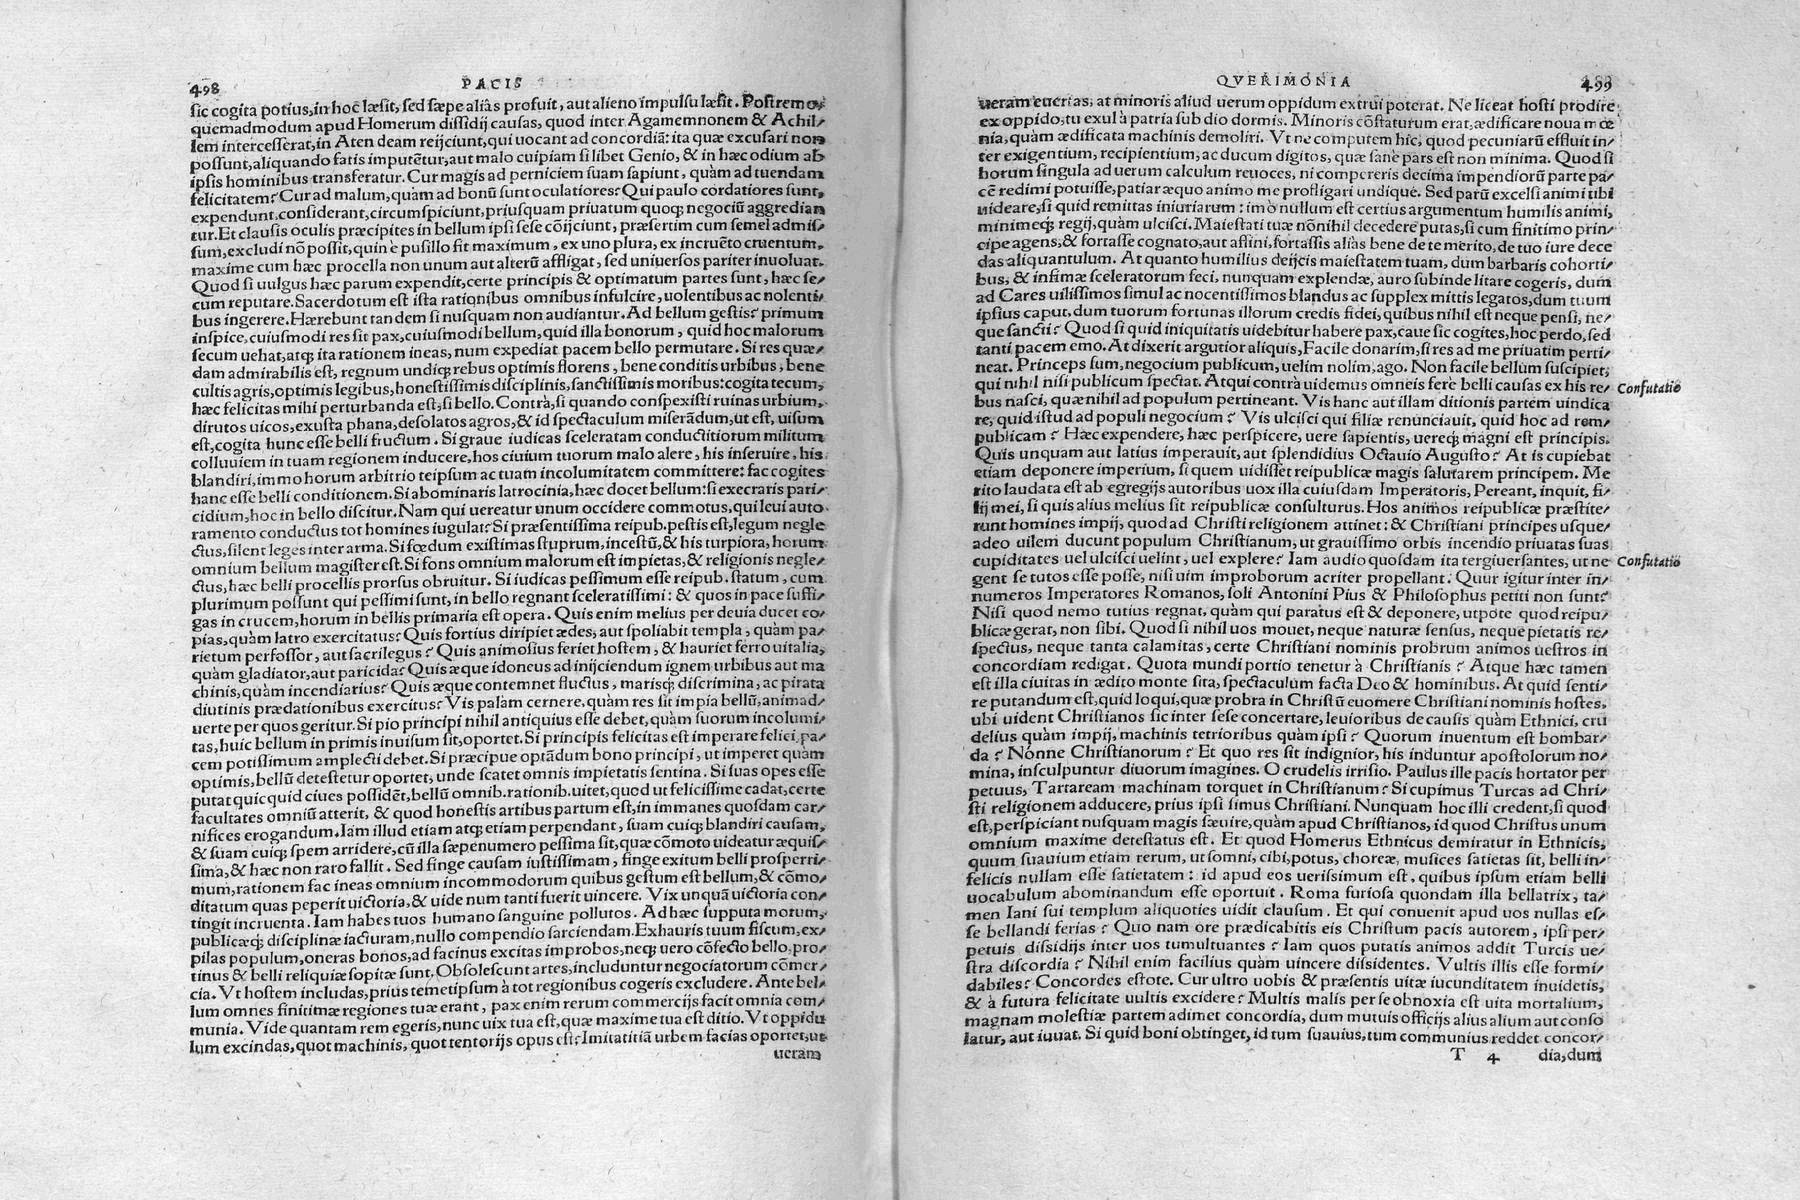 498 PACIS
sic cogita potius, in hoc læsit, sed sæpe aliâs profuit, aut alieno impulsu læsit. Postremo
quemadmodum apud Homerum dissidij causas, quod inter Agamemnonem & Achil-
lem intercesserat, in Aten deam reijciunt, qui uocant ad concordiã: ita quæ excusari non
possunt, aliquando fatis imputẽtur, aut malo cuipiam si libet Genio, & in hæc odium ab
ipsis hominibus transferatur. Cur magis ad perniciem suam sapiunt, quàm ad tuendam
felicitatem? Cur ad malum, quàm ad bonũ sunt oculatiores? Qui paulo cordatiores sunt,
expendunt, considerant, circumspiciunt, priusquam priuatum quoq; negociũ aggredian
tur. Et clausis oculis præcipites in bellum ipsi sese cõijciunt, præsertim cum semel admis-
sum, excludi nõ possit, quin è pusillo fit maximum, ex uno plura, ex incruẽto cruentum,
maxime cum hæc procella non unum aut alterũ affligat, sed uniuersos pariter inuoluat.
Quod si uulgus hæc parum expendit, certe principis & optimatum partes sunt, hæc se-
cum reputare. Sacerdotum est ista rationibus omnibus infulcire, uolentibus ac nolenti-
bus ingerere. Hærebunt tandem si nusquam non audiantur. Ad bellum gestis? primum
inspice, cuiusmodi res sit pax, cuiusmodi bellum, quid illa bonorum, quid hoc malorum
secum uehat, atq; ita rationem ineas, num expediat pacem bello permutare. Si res quæ-
dam admirabilis est, regnum undiq; rebus optimis florens, bene conditis urbibus, bene
cultis agris, optimis legibus, honestissimis disciplinis, sanctissimis moribus: cogita tecum,
hæc felicitas mihi perturbanda est, si bello. Contrà, si quando conspexisti ruinas urbium,
dirutos uicos, exusta phana, desolatos agros, & id spectaculum miserãdum, ut est, uisum
est, cogita hunc esse belli fructum. Si graue iudicas sceleratam conductitiorum militum
colluuiem in tuam regionem inducere, hos ciuium tuorum malo alere, his inseruire, his
blandiri, immo horum arbitrio teipsum ac tuam incolumitatem committere: fac cogites
hanc esse belli conditionem. Si abominaris latrocinia, hæc docet bellum: si execraris pari-
cidium, hoc in bello discitur. Nam qui uereatur unum occidere commotus, qui leui auto-
ramento conductus tot homines iugulat? Si præsentissima reipub. pestis est, legum negle
ctus, silent leges inter arma. Si fœdum existimas stuprum, incestũ, & his turpiora, horum
omnium bellum magister est. Si fons omnium malorum est impietas, & religionis negle-
ctus, hæc belli procellis prorsus obruitur. Si iudicas pessimum esse reipub. statum, cum
plurimum possunt qui pessimi sunt, in bello regnant sceleratissimi: & quos in pace suffi-
gas in crucem, horum in bellis primaria est opera. Quis enim melius per deuia ducet co-
pias, quàm latro exercitatus? Quis fortius diripiet ædes, aut spoliabit templa, quàm pa-
rietum perfossor, aut sacrilegus? Quis animosius feriet hostem, & hauriet ferro uitalia,
quàm gladiator, aut paricida? Quis æque idoneus ad inijciendum ignem urbibus aut ma
chinis, quàm incendiarius? Quis æque contemnet fluctus, marisq; discrimina, ac pirata
diutinis prædationibus exercitus? Vis palam cernere, quàm res sit impia bellũ, animad-
uerte per quos geritur. Si pio principi nihil antiquius esse debet, quàm suorum incolumi-
tas, huic bellum in primis inuisum sit, oportet. Si principis felicitas est imperare felici, pa-
cem potissimum amplecti debet. Si præcipue optãdum bono principi, ut imperet quàm
optimis, bellũ detestetur oportet, unde scatet omnis impietatis sentina. Si suas opes esse
putat quicquid ciues possidẽt, bellũ omnib. rationib. uitet, quod ut felicissime cadat, certe
facultates omniũ atterit, & quod honestis artibus partum est, in immanes quosdam car-
nifices erogandum. Iam illud etiam atq; etiam perpendant, suam cuiq; blandiri causam,
& suam cuiq; spem arridere, cũ illa sæpenumero pessima sit, quæ cõmoto uideatur æquis-
sima, & hæc non raro fallit. Sed finge causam iustissimam, finge exitum belli prosperri-
mum, rationem fac ineas omnium incommodorum quibus gestum est bellum, & cõmo-
ditatum quas peperit uictoria, & uide num tanti fuerit uincere. Vix unquã uictoria con-
tingit incruenta. Iam habes tuos humano sanguine pollutos. Ad hæc supputa morum,
publicæq; disciplinæ iacturam, nullo compendio sarciendam. Exhauris tuum fiscum, ex-
pilas populum, oneras bonos, ad facinus excitas improbos, neq; uero cõfecto bello, pro-
tinus & belli reliquiæ sopitæ sunt. Obsolescunt artes, includuntur negociatorum cõmer-
cia. Vt hostem includas, prius temetipsum à tot regionibus cogeris excludere. Ante bel-
lum omnes finitimæ regiones tuæ erant, pax enim rerum commercijs facit omnia com-
munia. Vide quantam rem egeris, nunc uix tua est, quæ maxime tua est ditio. Vt oppidu
lum excindas, quot machinis, quot tentorijs opus est? Imitatitiã urbem facias oportet, ut
ueram
QVERIMONIA 499
ueram euertas, at minoris aliud uerum oppidum extrui poterat. Ne liceat hosti prodire
ex oppido, tu exul à patria sub dio dormis. Minoris cõstaturum erat, ædificare noua mœ
nia, quàm ædificata machinis demoliri. Vt ne computem hîc, quod pecuniarũ effluit in-
ter exigentium, recipientium, ac ducum digitos, quæ sanè pars est non minima. Quod si
horum singula ad uerum calculum reuoces, ni compereris decima impendiorũ parte pa-
cẽ redimi potuisse, patiar æquo animo me profligari undique. Sed parũ excelsi animi tibi
uideare, si quid remittas iniuriarum: imò nullum est certius argumentum humilis animi,
minimeq; regij, quàm ulcisci. Maiestati tuæ nõnihil decedere putas, si cum finitimo prin-
cipe agens, & fortasse cognato, aut affini, fortassis aliàs bene de te merito, de tuo iure dece
das aliquantulum. At quanto humilius deijcis maiestatem tuam, dum barbaris cohorti-
bus, & infimæ sceleratorum feci, nunquam explendæ, auro subinde litare cogeris, dum
ad Cares uilissimos simul ac nocentissimos blandus ac supplex mittis legatos, dum tuum
ipsius caput, dum tuorum fortunas illorum credis fidei, quibus nihil est neque pensi, ne-
que sancti? Quod si quid iniquitatis uidebitur habere pax, caue sic cogites, hoc perdo, sed
tanti pacem emo. At dixerit argutior aliquis, Facile donarim, si res ad me priuatim perti-
neat. Princeps sum, negocium publicum, uelim nolim, ago. Non facile bellum suscipiet,
qui nihil nisi publicum spectat. Atqui contrà uidemus omneis fere belli causas ex his re- Confutatio
bus nasci, quæ nihil ad populum pertineant. Vis hanc aut illam ditionis partem uindica
re, quid istud ad populi negocium? Vis ulcisci qui filiæ renunciauit, quid hoc ad rem-
publicam? Hæc expendere, hæc perspicere, uere sapientis, uereq; magni est principis.
Quis unquam aut latius imperauit, aut splendidius Octauio Augusto? At is cupiebat
etiam deponere imperium, si quem uidisset reipublicæ magis salutarem principem. Me
rito laudata est ab egregijs autoribus uox illa cuiusdam Imperatoris, Pereant, inquit, fi-
lij mei, si quis alius melius sit reipublicæ consulturus. Hos animos reipublicæ præstite-
runt homines impij, quod ad Christi religionem attinet: & Christiani principes usque-
adeo uilem ducunt populum Christianum, ut grauissimo orbis incendio priuatas suas
cupiditates uel ulcisci uelint, uel explere? Iam audio quosdam ita tergiuersantes, ut ne Confutatiõ
gent se tutos esse posse, nisi uim improborum acriter propellant. Quur igitur inter in-
numeros Imperatores Romanos, soli Antonini Pius & Philosophus petiti non sunt?
Nisi quod nemo tutius regnat, quàm qui paratus est & deponere, utpote quod reipu-
blicæ gerat, non sibi. Quod si nihil uos mouet, neque naturæ sensus, neque pietatis re-
spectus, neque tanta calamitas, certe Christiani nominis probrum animos uestros in
concordiam redigat. Quota mundi portio tenetur à Christianis? Atque hæc tamen
est illa ciuitas in ædito monte sita, spectaculum facta Deo & hominibus. At quid senti-
re putandum est, quid loqui, quæ probra in Christũ euomere Christiani nominis hostes,
ubi uident Christianos sic inter sese concertare, leuioribus de causis quàm Ethnici, cru
delius quàm impij, machinis tetrioribus quàm ipsi? Quorum inuentum est bombar-
da? Nónne Christianorum? Et quo res sit indignior, his induntur apostolorum no-
mina, insculpuntur diuorum imagines. O crudelis irrisio. Paulus ille pacis hortator per
petuus, Tartaream machinam torquet in Christianum? Si cupimus Turcas ad Chri-
sti religionem adducere, prius ipsi simus Christiani. Nunquam hoc illi credent, si quod
est, perspiciant nusquam magis sæuire, quàm apud Christianos, id quod Christus unum
omnium maxime detestatus est. Et quod Homerus Ethnicus demiratur in Ethnicis,
quum suauium etiam rerum, ut somni, cibi, potus, choreæ, musices satietas sit, belli in-
felicis nullam esse satietatem: id apud eos uerissimum est, quibus ipsum etiam belli
uocabulum abominandum esse oportuit. Roma furiosa quondam illa bellatrix, ta-
men Iani sui templum aliquoties uidit clausum. Et qui conuenit apud uos nullas es-
se bellandi ferias? Quo nam ore prædicabitis eis Christum pacis autorem, ipsi per-
petuis dissidijs inter uos tumultuantes? Iam quos putatis animos addit Turcis ue-
stra discordia? Nihil enim facilius quàm uincere dissidentes. Vultis illis esse formi-
dabiles? Concordes estote. Cur ultro uobis & præsentis uitæ iucunditatem inuidetis,
& à futura felicitate uultis excidere? Multis malis per se obnoxia est uita mortalium,
magnam molestiæ partem adimet concordia, dum mutuis officijs alius alium aut conso
latur, aut iuuat. Si quid boni obtinget, id tum suauius, tum communius reddet concor-
T 4 dia, dum